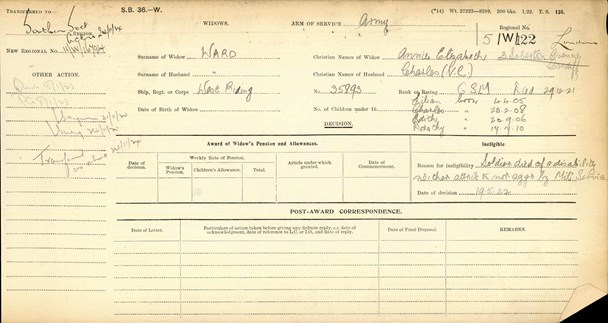 TRANSFERRED TO— S.B. 36.—W. WIDOWS. ARM OF SERVICE Army (*14) Wt. 27223—8289. 200 lks. 1/22. T. S. 126.
REGION.
Regional No.
5/W/122
NEW REGIONAL No.
Surname of Widow WARD Christian Names of Widow Annie Elizabeth
OTHER ACTION. Surname of Husband " Christian Names of Husband Charles (V.C.)
Ship, Regt. or Corps West Riding No. 35893 Rank or Rating CSM Died 29.12.21
Date of Birth of Widow No. of Children under 16 Lilian born 4.4.05
Charles 20.2.08
20.9.06
Dorothy 17.9.10
DECISION.
Award of Widow's Pension and Allowances. Ineligible.
Date of decision. Weekly Rate of Pension. Article under which granted. Date of Commencement.
Widow's Pension. Children's Allowance. Total.
Reason for ineligibility Soldier died of a disability
neither attrib. & not aggr by Mil. Service
Date of decision 19.5.22
POST-AWARD CORRESPONDENCE.
Date of Letter. Particulars of action taken before giving any definite reply, ex. date of acknowledgment, date of reference to L.C. or I.O., and date of reply. Date of Final Disposal. REMARKS.